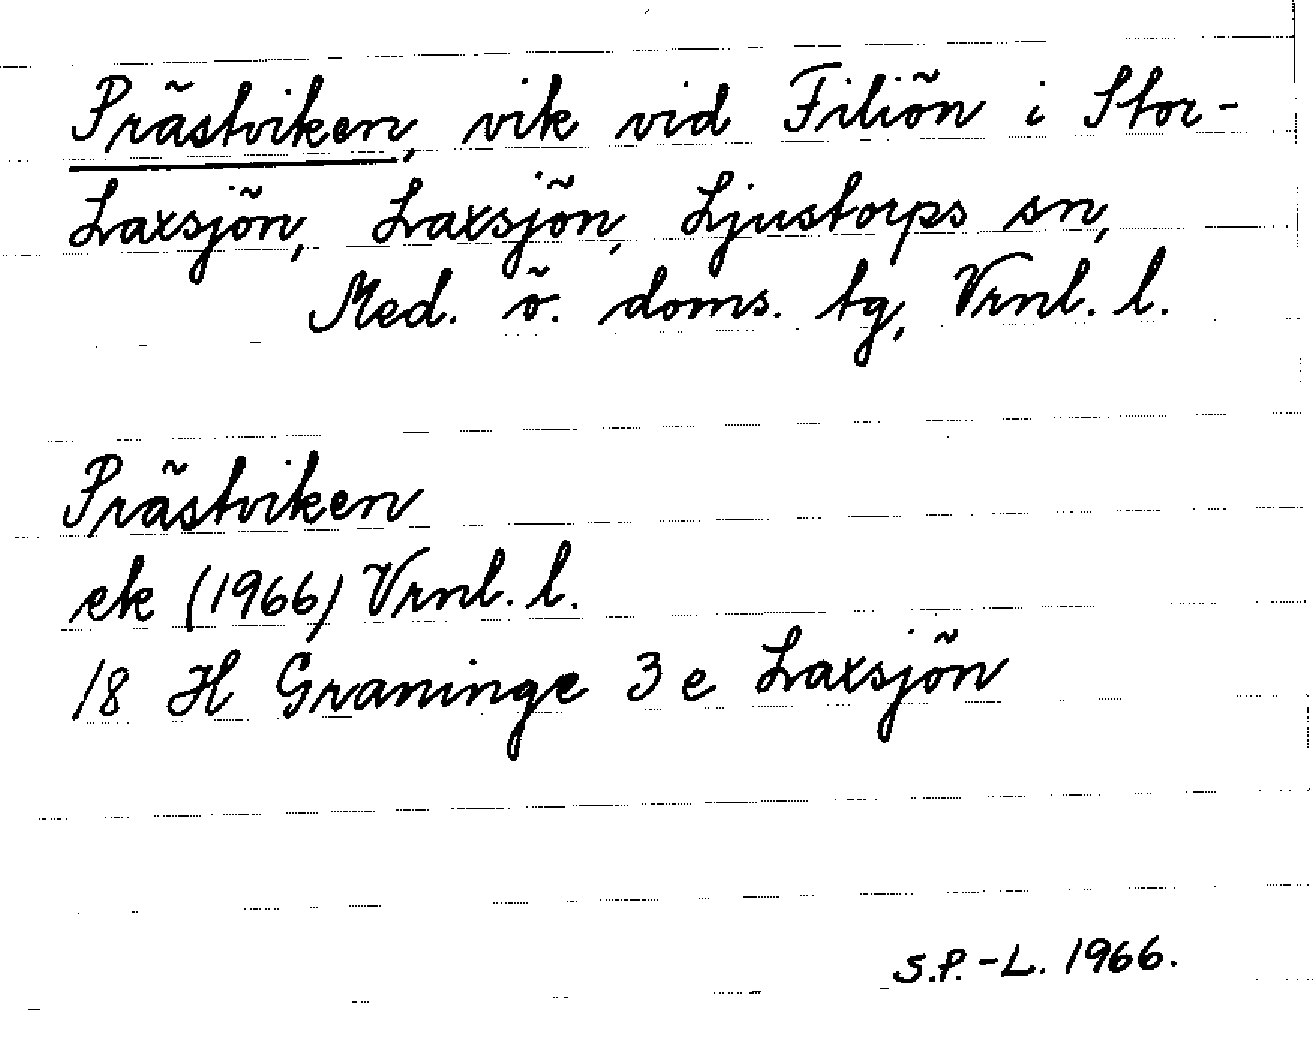 Prästviken, vik vid Filiön i Stor-
Laxsjön, Laxsjön, Ljustorps sn,
Med. ö. doms. tg, Vrnl. l.
Prästviken
ek (1966) Vrnl. l.
18 H Graninge 3 e Laxsjön
S.P.-L. 1966.